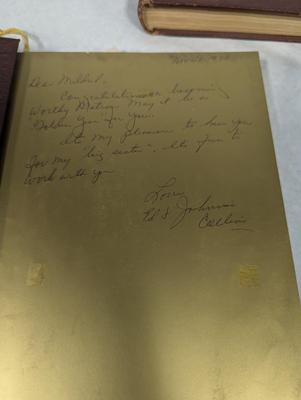 Dear Mildred,
Congratulations on becoming
Worthy Matron. May it be a
"Golden Year" for you.
Its my pleasure to have you
for my "big sister". Its fun to
work with you
Love
Ed & Johnnie
Collins